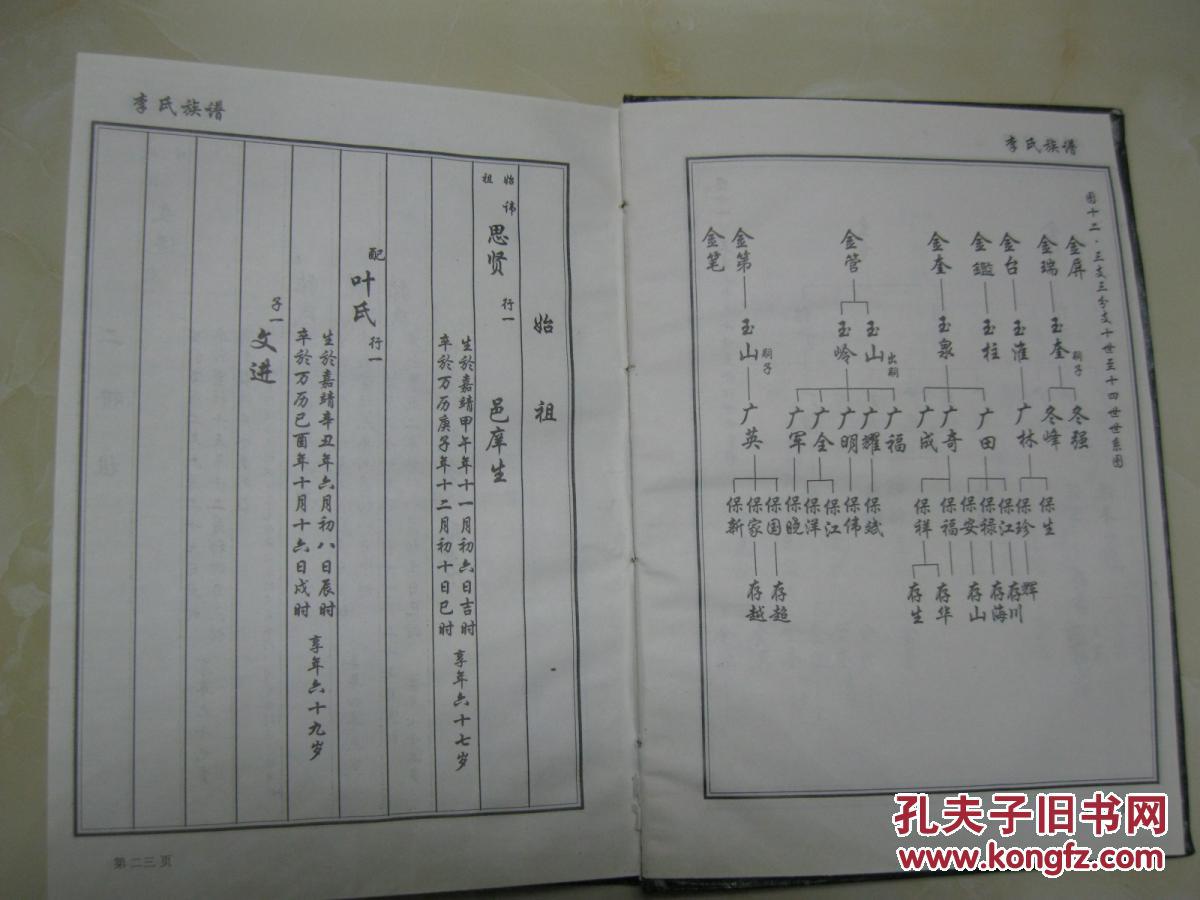 李氏族谱
图十二·三支三分支十世至十四世世系图
金屏 金瑞 金台 金鑑 金奎 金管 金第 金笔
玉奎 嗣子 玉淮 玉柱 玉泉 玉山 出嗣 玉岭 玉山 嗣子
冬强 冬峰 广林 广田 广奇 广成 广福 广耀 广明 广全 广军 广英
保生 保珍 保江 保禄 保安 保福 保祥 保斌 保伟 保江 保洋 保晚 保国 保家 保新
辉 存川 存海 存山 存华 存生 存超 存越
李氏族谱
始祖
始祖 讳 思贤 行一 邑庠生
生於嘉靖甲午年十一月初六日吉时
卒於万历庚子年十二月初十日巳时 享年六十七岁
配 叶氏 行一
生於嘉靖辛丑年六月初八日辰时
卒於万历己酉年十月十六日戌时 享年六十九岁
子一 文进
第二三页
孔夫子旧书网
www.kongfz.com